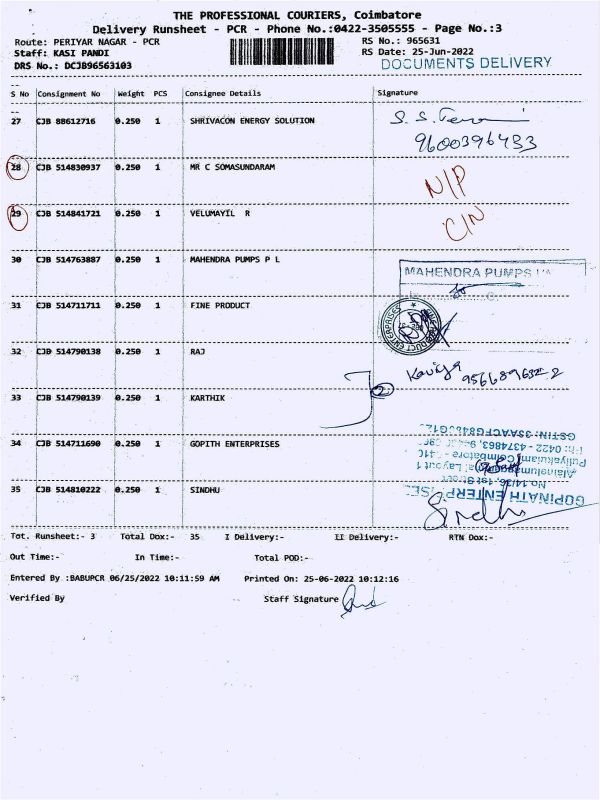 THE PROFESSIONAL COURIERS, Coimbatore
Delivery Runsheet - PCR - Phone No.:0422-3505555 - Page No.:3
Route: PERIYAR NAGAR - PCR
RS No.: 965631
Staff: KASI PANDI
RS Date: 25-Jun-2022
DRS No.: DCJB96563103
DOCUMENTS DELIVERY
S No Consignment No Weight PCS Consignee Details Signature
27 CJB 88612716 0.250 1 SHRIVACON ENERGY SOLUTION
9600396433
28 CJB 514830937 0.250 1 MR C SOMASUNDARAM
N/P
29 CJB 514841721 0.250 1 VELUMAYIL R
C/N
30 CJB 514763887 0.250 1 MAHENDRA PUMPS P L
MAHENDRA PUMPS
31 CJB 514711711 0.250 1 FINE PRODUCT
32 CJB 514790138 0.250 1 RAJ
Kaviya
33 CJB 514790139 0.250 1 KARTHIK
2
34 CJB 514711690 0.250 1 GOPITH ENTERPRISES
35 CJB 514810222 0.250 1 SINDHU
Sindhu
Tot. Runsheet:- 3 Total Dox:- 35 I Delivery:- II Delivery:- RTN Dox:-
Out Time:- In Time:- Total POD:-
Entered By :BABUPCR 06/25/2022 10:11:59 AM Printed On: 25-06-2022 10:12:16
Verified By Staff Signature